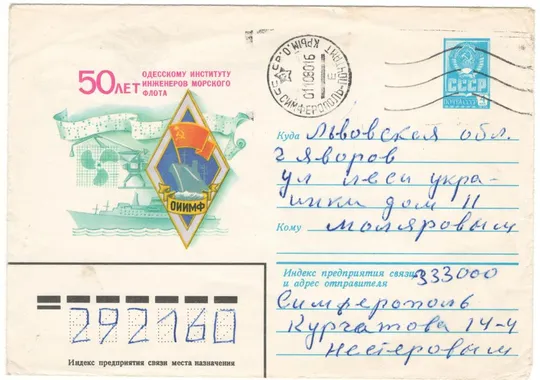 50 ЛЕТ ОДЕССКОМУ ИНСТИТУТУ
ИНЖЕНЕРОВ МОРСКОГО
ФЛОТА
ОИИМФ
СИМФЕРОПОЛЬ-ПОЧТАМТ
КРЫМ. О.
01108016
СССР
Куда Львовская обл.
г Яворов
ул леси укра-
инки дом 11
Кому Моляровым
Индекс предприятия связи
и адрес отправителя
333000
Симферополь
Курчатова 14-4
Нестеровым
292160
Индекс предприятия связи места назначения